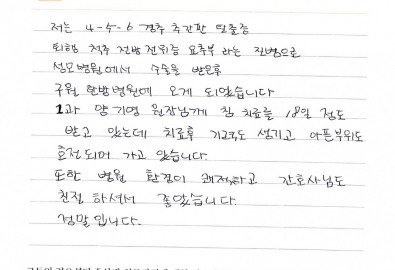 저는 4-5-6 경추 추간판 탈출증
퇴행 척추 전방 전위증 요추부 라는 진병으로
성모병원에서 수술을 받은후
구월 한방병원에 오게 되었습니다
1과 양기영 원장님께 침 치료를 18일 정도
받고 있는데 치료후 기교적도 생기고 아픈부위도
호전되어 가고 있습니다.
또한 병원 환경이 쾌적하고 간호사님도
친절 하셔서 좋았습니다.
정말입니다.